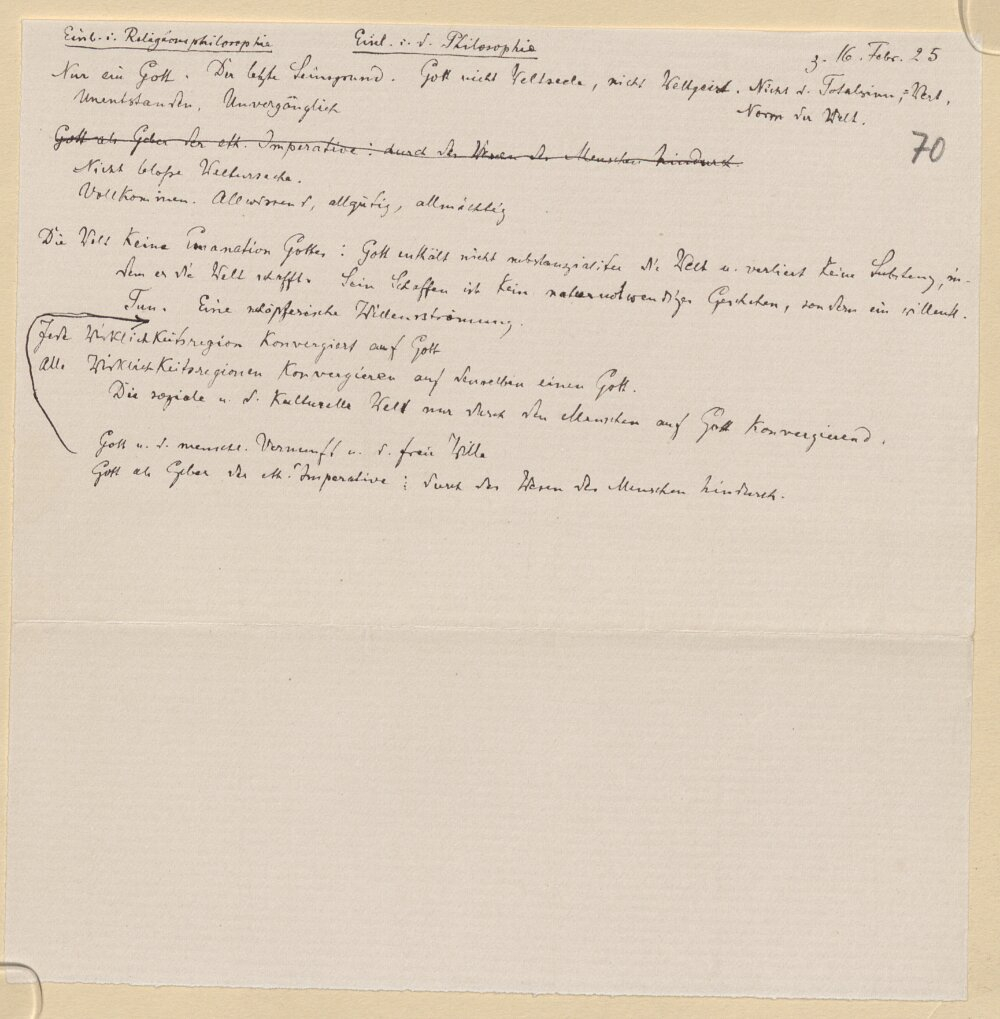 Einl. i. Religionsphilosophie Einl. i. d. Philosophie
z. 16. Febr. 25
Nur ein Gott. Der letzte Seinsgrund. Gott nicht Weltseele, nicht Weltgeist. Nicht d. Totalsinn, =Wert,
Norm der Welt.
Unentstanden, Unvergänglich
70
Gott als Geber der eth. Imperative: durch das Wesen des Menschen hindurch.
Nicht bloße Weltursache.
Vollkommen. Allwissend, allgütig, allmächtig
Die Welt keine Emanation Gottes: Gott enthält nicht substanzialiter die Welt u. verliert keine Substanz, in-
dem er die Welt schafft. Sein Schaffen ist kein naturnotwendiges Geschehen, sondern ein willentl.
Tun. Eine schöpferische Willensströmung.
Jede Wirklichkeitsregion konvergiert auf Gott
Alle Wirklichkeitsregionen konvergieren auf denselben einen Gott.
Die soziale u. d. kulturelle Welt nur durch den Menschen auf Gott konvergierend.
Gott u. d. menschl. Vernunft u. d. freie Wille
Gott als Geber der eth. Imperative: durch das Wesen des Menschen hindurch.